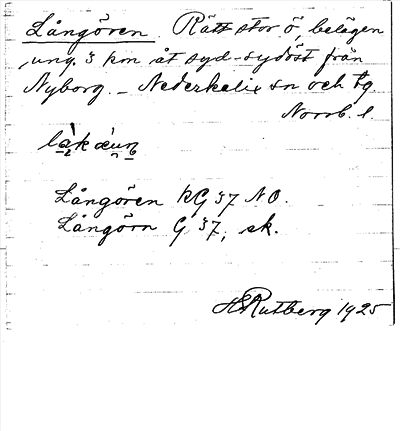 Långören. Rätt stor ö, belägen
ung. 3 km åt syd-sydöst från
Nyborg. – Nederkalix sn och tg
Norrb. l.
Långören KG 37 NO.
Långörn G 37, sk.
H Rutberg 1925